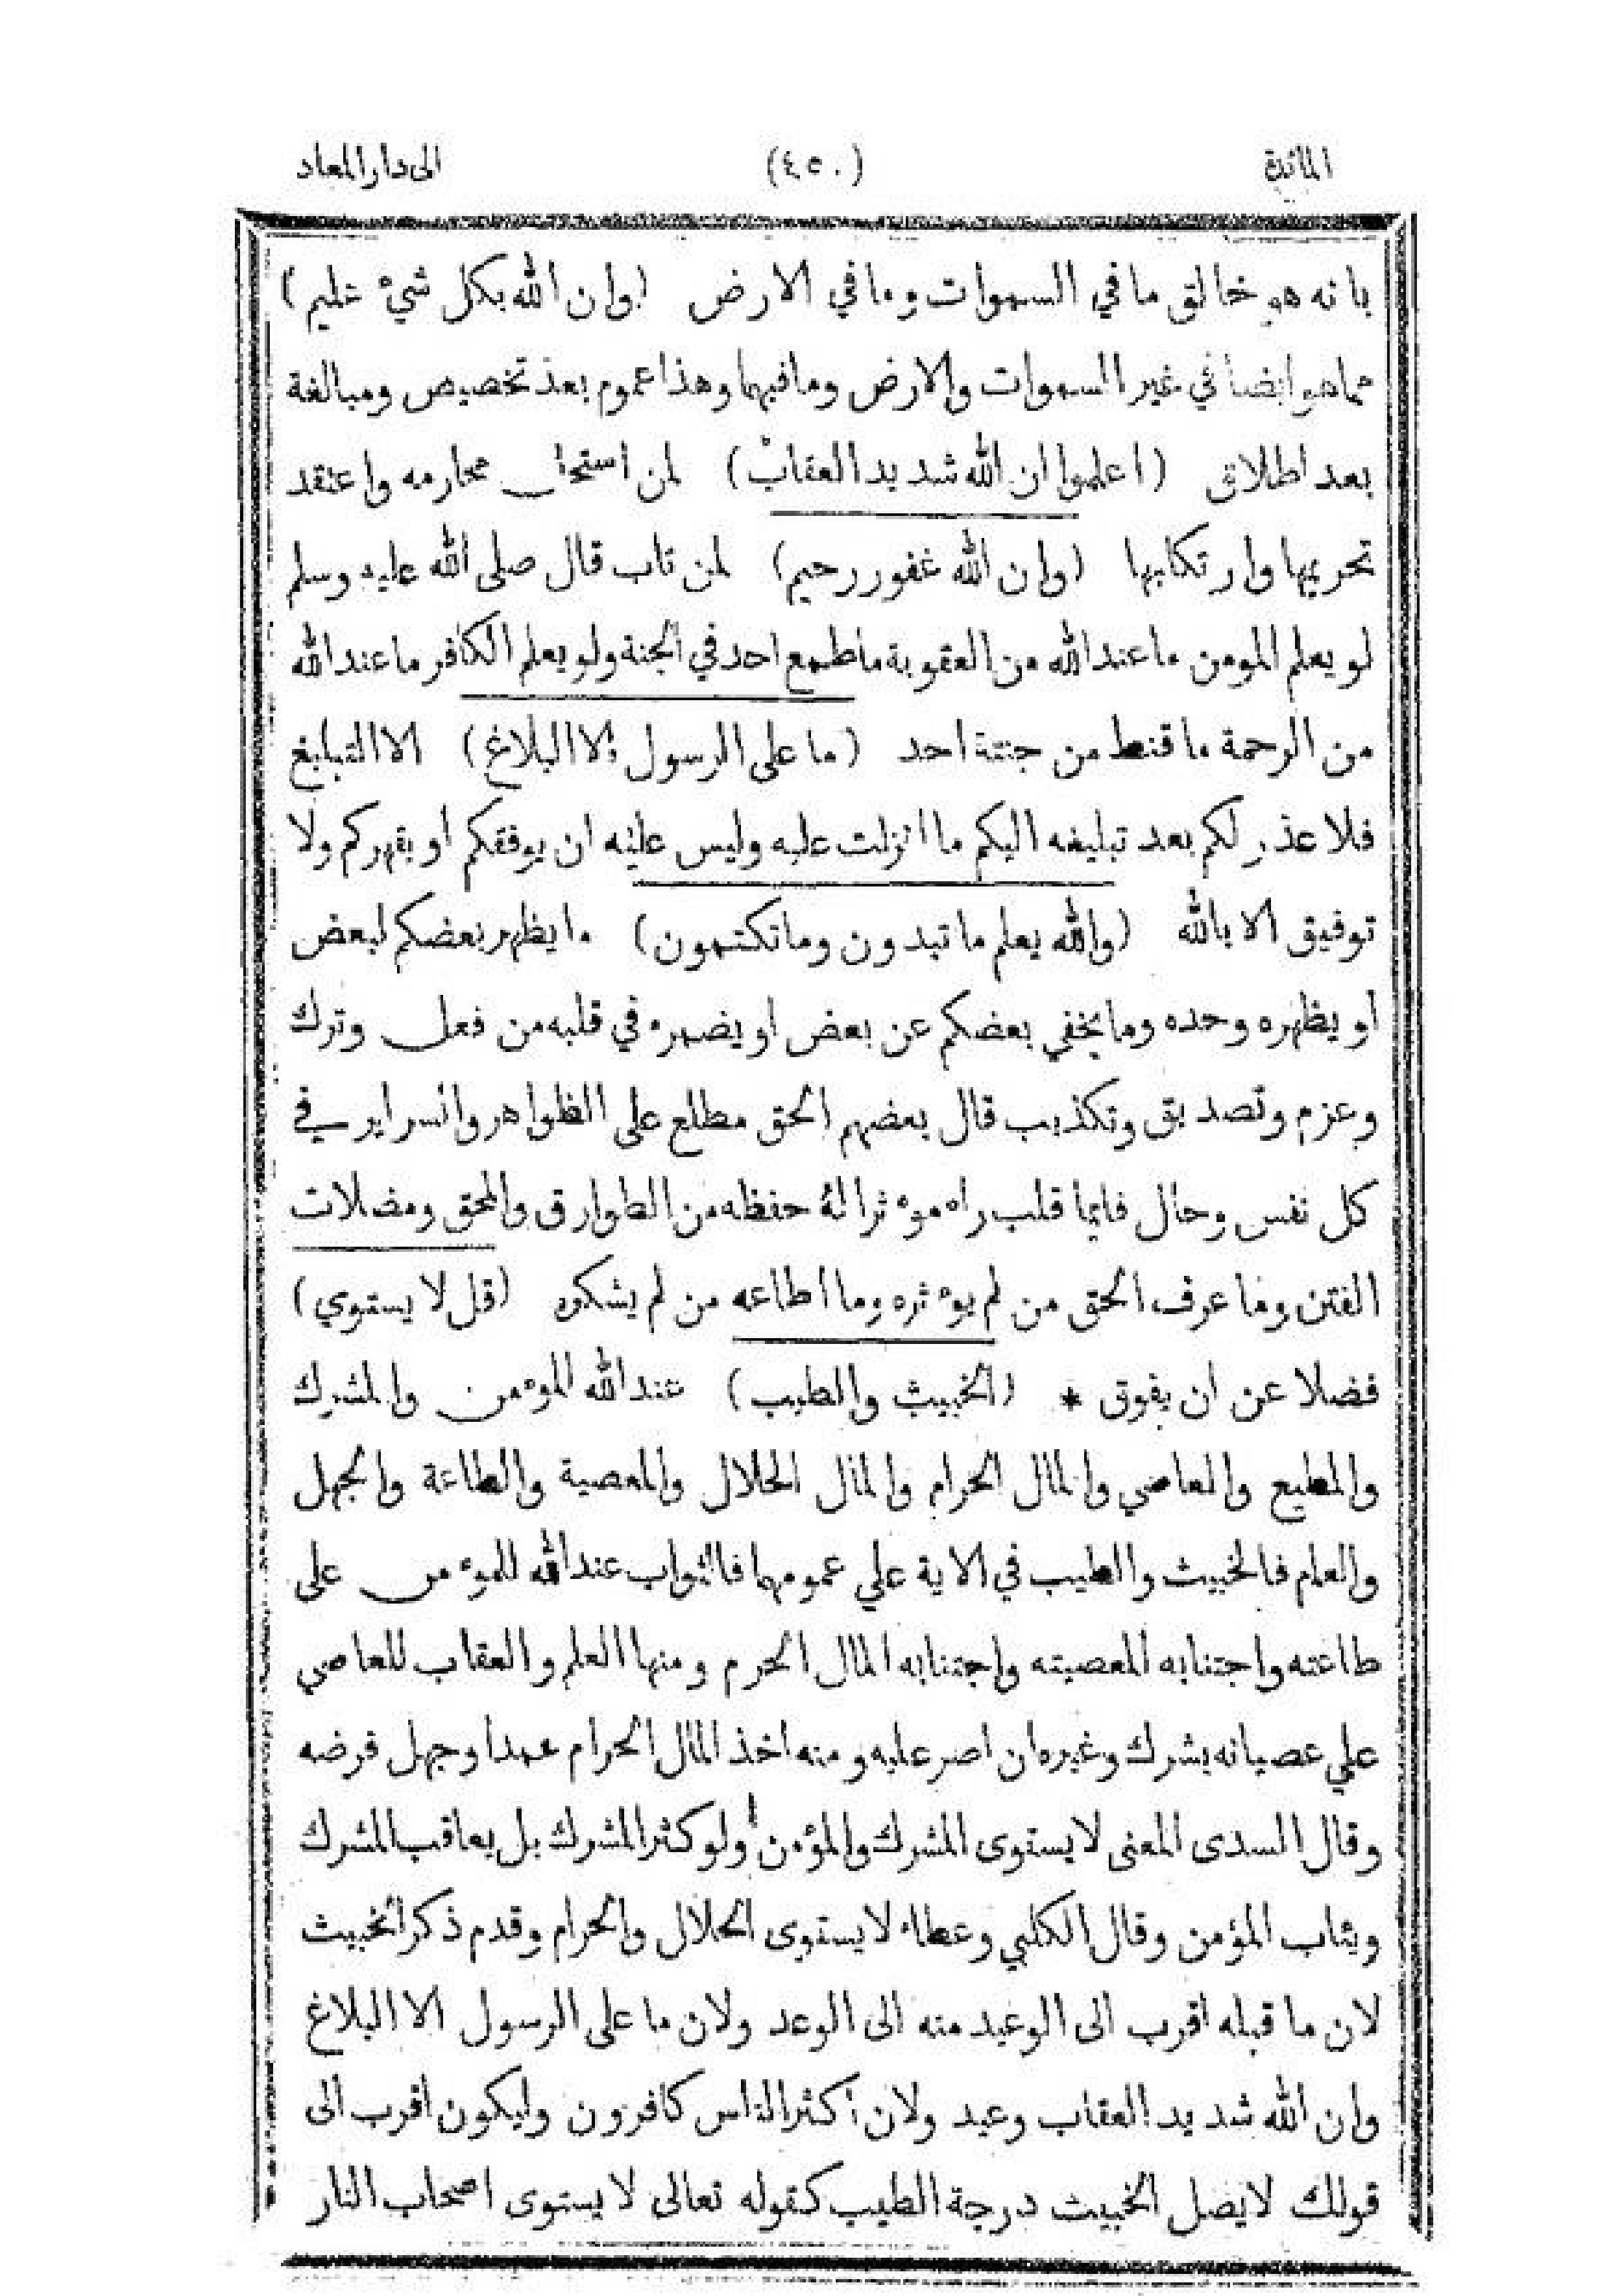 المائدة (٤٥٠) الى دار المعاد
بانه هو خالق ما في السموات وما في الارض (وان الله بكل شيء عليم)
مما هو ايضا في غير السموات والارض وما فيهما وهذا عموم بعد تخصيص ومبالغة
بعد اطلاق (اعلموا ان الله شديد العقاب) لمن استحل محارمه واعتقد
تحريمها وارتكابها (وان الله غفور رحيم) لمن تاب قال صلى الله عليه وسلم
لو يعلم المومن ما عند الله من العقوبة ما طمع احد في الجنة ولو يعلم الكافر ما عند الله
من الرحمة ما قنط من جنته احد (ما على الرسول الا البلاغ) الا التبليغ
فلا عذر لكم بعد تبليغه اليكم ما انزلت عليه وليس عليه ان يوفقكم او يقهركم ولا
توفيق الا بالله (والله يعلم ما تبدون وما تكتمون) ما يظهر بعضكم لبعض
او يظهره وحده وما يخفي بعضكم عن بعض او يضمره في قلبه من فعل وترك
وعزم وتصديق وتكذيب قال بعضهم الحق مطلع على الظواهر والسراير في
كل نفس وحال فايما قلب راه موءثرا له حفظه من الطوارق والمحق ومضلات
الفتن وما عرف الحق من لم يوءثره وما اطاعه من لم يشكره (قل لا يستوي)
فضلا عن ان يفوق * (الخبيث والطيب) عند الله الموءمن والمشرك
والمطيع والعاصي والمال الحرام والمال الحلال والمعصية والطاعة والجهل
والعلم فالخبيث والطيب في الاية علي عمومهما فالثواب عند الله للموءمن على
طاعته واجتنابه المعصيته واجتنابه المال الحرم ومنها العلم والعقاب للعاصي
علي عصيانه بشرك وغيره ان اصر عليه ومنه اخذ المال الحرام عمدا وجهل فرضه
وقال السدى المعنى لا يستوى المشرك والمؤمن ولو كثر المشرك بل يعاقب المشرك
ويثاب المؤمن وقال الكلبي وعطاء لا يستوى الحلال والحرام وقدم ذكر الخبيث
لان ما قبله اقرب الى الوعيد منه الى الوعد ولان ما على الرسول الا البلاغ
وان الله شديد العقاب وعيد ولان اكثر الناس كافرون وليكون اقرب الى
قولك لا يصل الخبيث درجة الطيب كقوله تعالى لا يستوى اصحاب النار